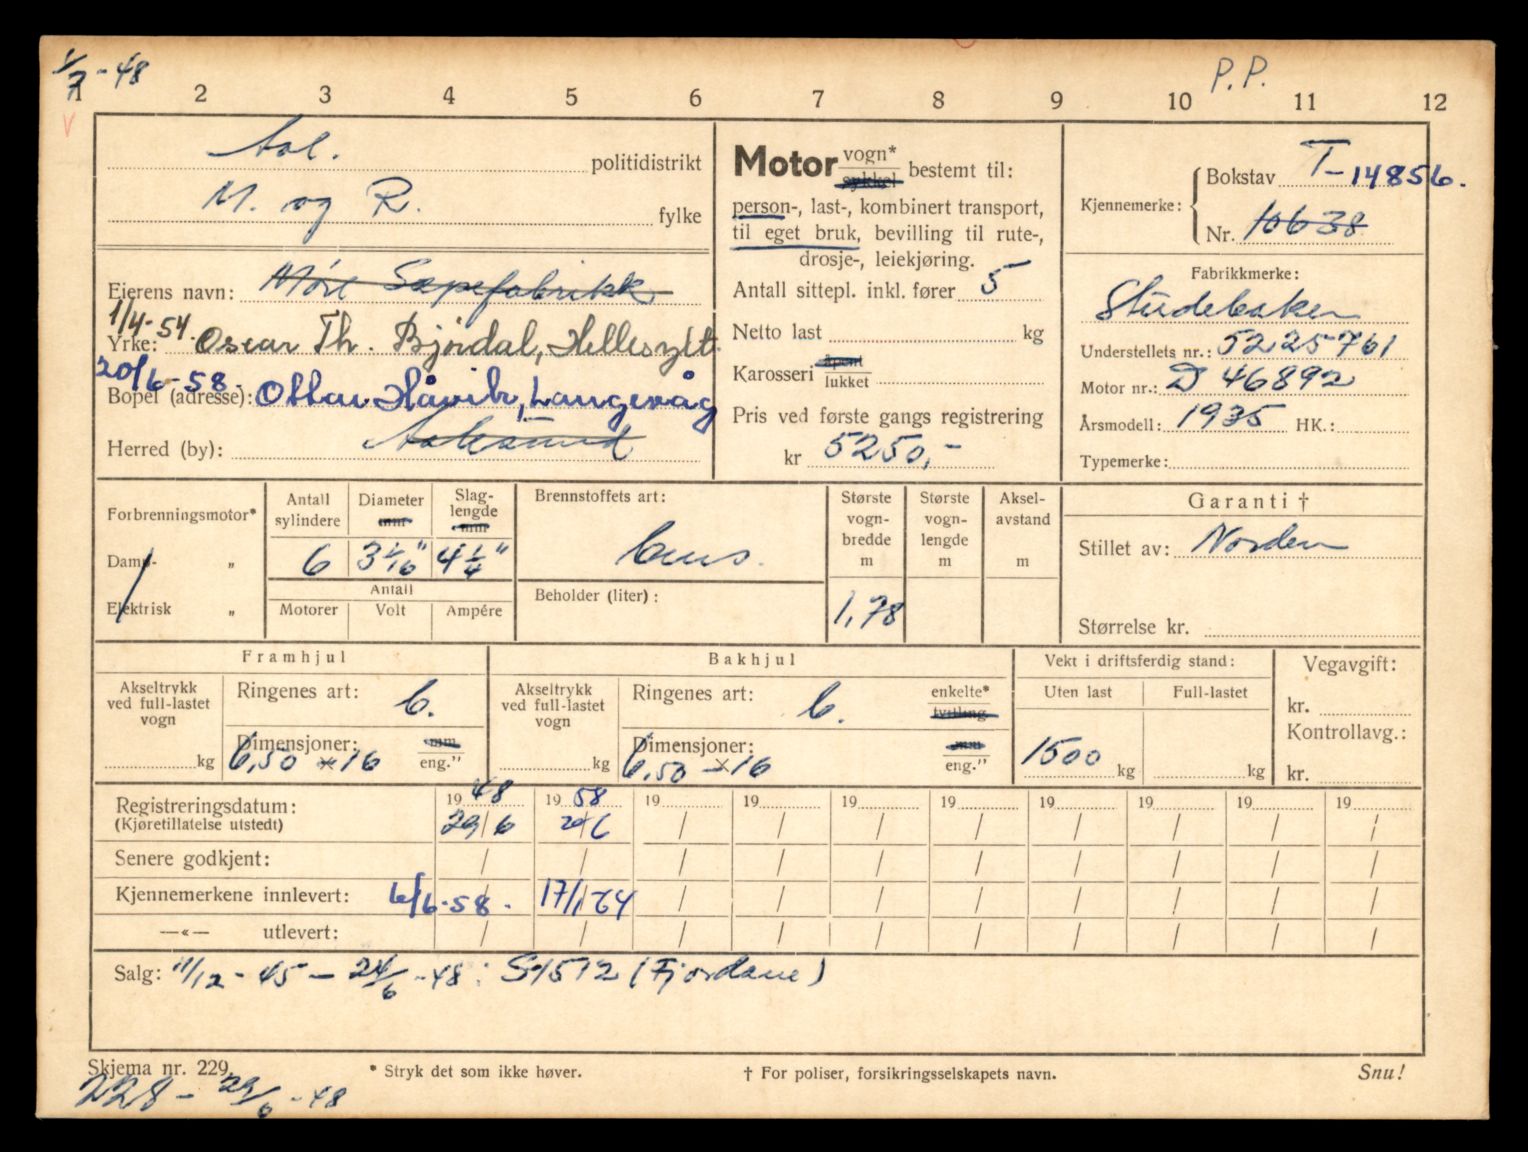 1/7 - 48
P. P.
1 2 3 4 5 6 7 8 9 10 11 12
V
Aal. politidistrikt
M. og R. fylke
Eierens navn: Møre Sæpefabrikk
1/4-54.
Yrke: Oscar Th. Bjørdal, Hellesylt.
20/6-58.
Bopel (adresse): Ottar Håvik, Langevåg
Herred (by): Aalesund
Motor vogn* sykkel bestemt til:
person-, last-, kombinert transport,
til eget bruk, bevilling til rute-,
drosje-, leiekjøring.
Antall sittepl. inkl. fører 5
Netto last kg
Karosseri åpent lukket
Pris ved første gangs registrering
kr 5250,-
Kjennemerke: Bokstav T-14856.
Nr. 10638
Fabrikkmerke:
Studebaker
Understellets nr.: 5225761
Motor nr.: D 46892
Årsmodell: 1935 HK.:
Typemerke:
Forbrenningsmotor*
Damp- „
Elektrisk „
Antall sylindere 6
Diameter mm 3 1/16"
Slaglengde mm 4 1/4"
Antall
Motorer Volt Ampére
Brennstoffets art:
Beholder (liter):
Største vognbredde m 1,78
Største vognlengde m
Akselavstand m
Garanti †
Stillet av: Norden
Størrelse kr.
Framhjul
Akseltrykk ved full-lastet vogn kg
Ringenes art: C.
Dimensjoner: mm eng."
6,50 x 16
Bakhjul
Akseltrykk ved full-lastet vogn kg
Ringenes art: C. enkelte* tvilling
Dimensjoner: mm eng."
6,50 x 16
Vekt i driftsferdig stand:
Uten last Full-lastet
1500 kg kg
Vegavgift:
kr.
Kontrollavg.:
kr.
Registreringsdatum: 19 48 19 58 19 19 19 19 19 19 19 19
(Kjøretillatelse utstedt) 29/6 20/6 / / / / / / / /
Senere godkjent: / / / / / / / / / /
Kjennemerkene innlevert: 6/6-58. 17/1 64 / / / / / / / /
—«— utlevert: / / / / / / / / / /
Salg: 11/12-45 - 24/6-48: S-1512 (Fjordane)
Skjema nr. 229. * Stryk det som ikke høver. † For poliser, forsikringsselskapets navn. Snu!
228 - 29/6 - 48